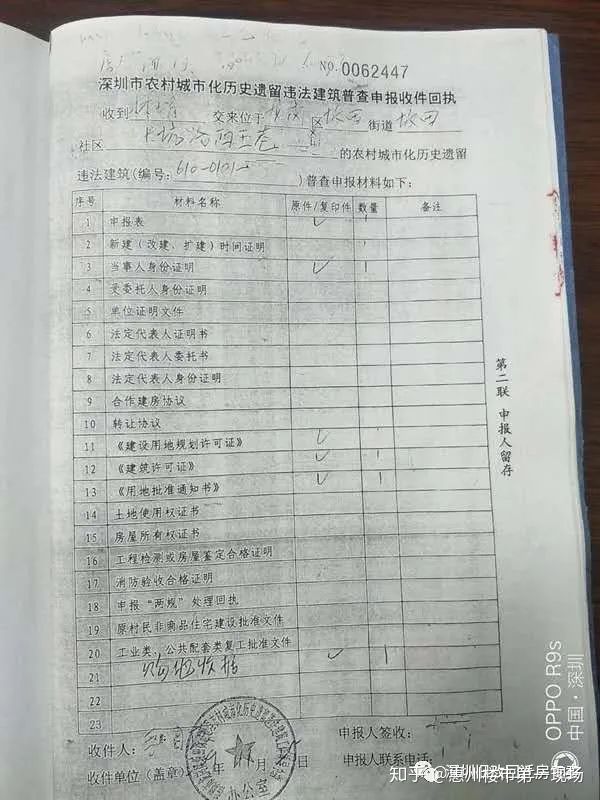 NO.0062447
深圳市农村城市化历史遗留违法建筑普查申报收件回执
收到 交来位于 区 坂田 街道 坂田
社区 的农村城市化历史遗留
违法建筑(编号: 610-0101 )普查申报材料如下:
序号 材料名称 原件/复印件 数量 备注
1 申报表 ✓ 1
2 新建(改建、扩建)时间证明
3 当事人身份证明 ✓ 1
4 受委托人身份证明
5 单位证明文件
6 法定代表人证明书
7 法定代表人委托书
8 法定代表人身份证明
9 合作建房协议
10 转让协议
11 《建设用地规划许可证》 ✓ 1
12 《建筑许可证》 ✓ 1
13 《用地批准通知书》 ✓ 1
14 土地使用权证书
15 房屋所有权证书
16 工程检测或房屋鉴定合格证明
17 消防验收合格证明
18 申报“两规”处理回执
19 原村民非商品住宅建设批准文件
20 工业类、公共配套类复工批准文件
21 收据 ✓ 1
22
23
收件人: 申报人签收:
收件单位(盖章) 年 月 日 申报人联系电话
办公室
第二联 申报人留存
OPPO R9s
中国·深圳
知乎 @惠州楼市第一现场